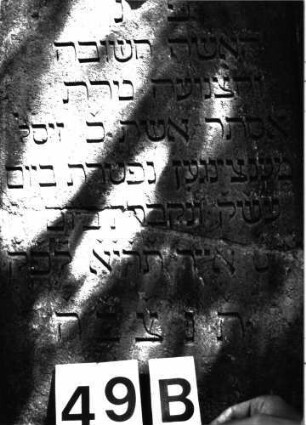 פ נ
האשה חשובה
והצניעה מרת
אסתר אשת כ זיסל
מענצינגען נפטרת ביום
עשק ונקברת ביום
אייר תריא לפק
ת נ צ ב ה
49 B